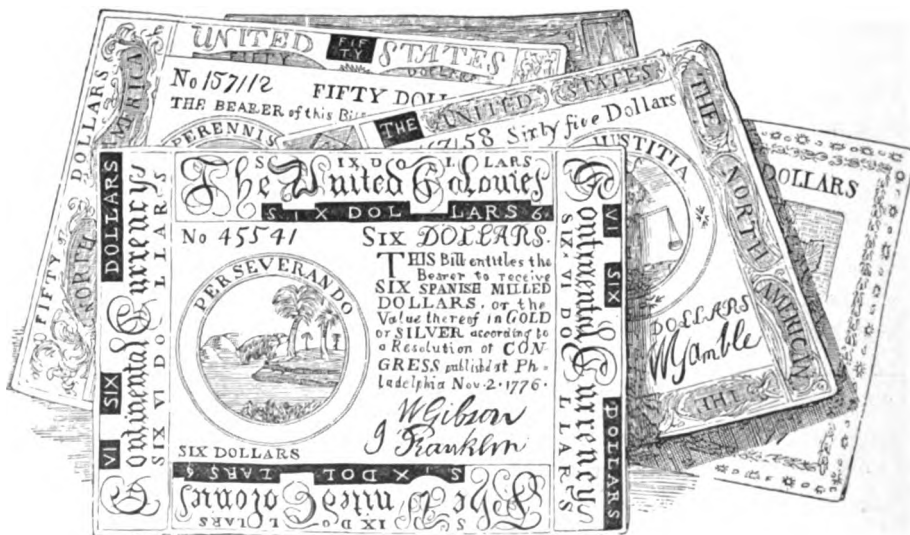 UNITED FIF TY STATES
FIFTY DOLLARS
No 157112 FIFTY DOLL
THE BEARER of this Bill
PERENNIS
FIFTY DOLLARS
NORTH AMERICA
THE UNITED STATES
58 Sixty five Dollars
JUSTITIA
THE NORTH AMERICAN
DOLLARS
WGamble
THE
DOLLARS
SIX DOLLARS
The United Colonies
SIX DOLLARS 6.
No 45541 SIX DOLLARS.
PERSEVERANDO
THIS Bill entitles the
Bearer to receive
SIX SPANISH MILLED
DOLLARS, or the
Value thereof in GOLD
or SILVER according to
a Resolution of CON-
GRESS publishd at Ph-
ladelphia Nov. 2. 1776.
W Gibson
J Franklin
SIX DOLLARS
VI SIX DOLLARS
Continental Currency
SIX VI DOLLARS
Continental Currency
SIX VI DOLLARS
VI SIX DOLLARS
SIX DOLLARS 6
The United Colonies
SIX DOLLARS